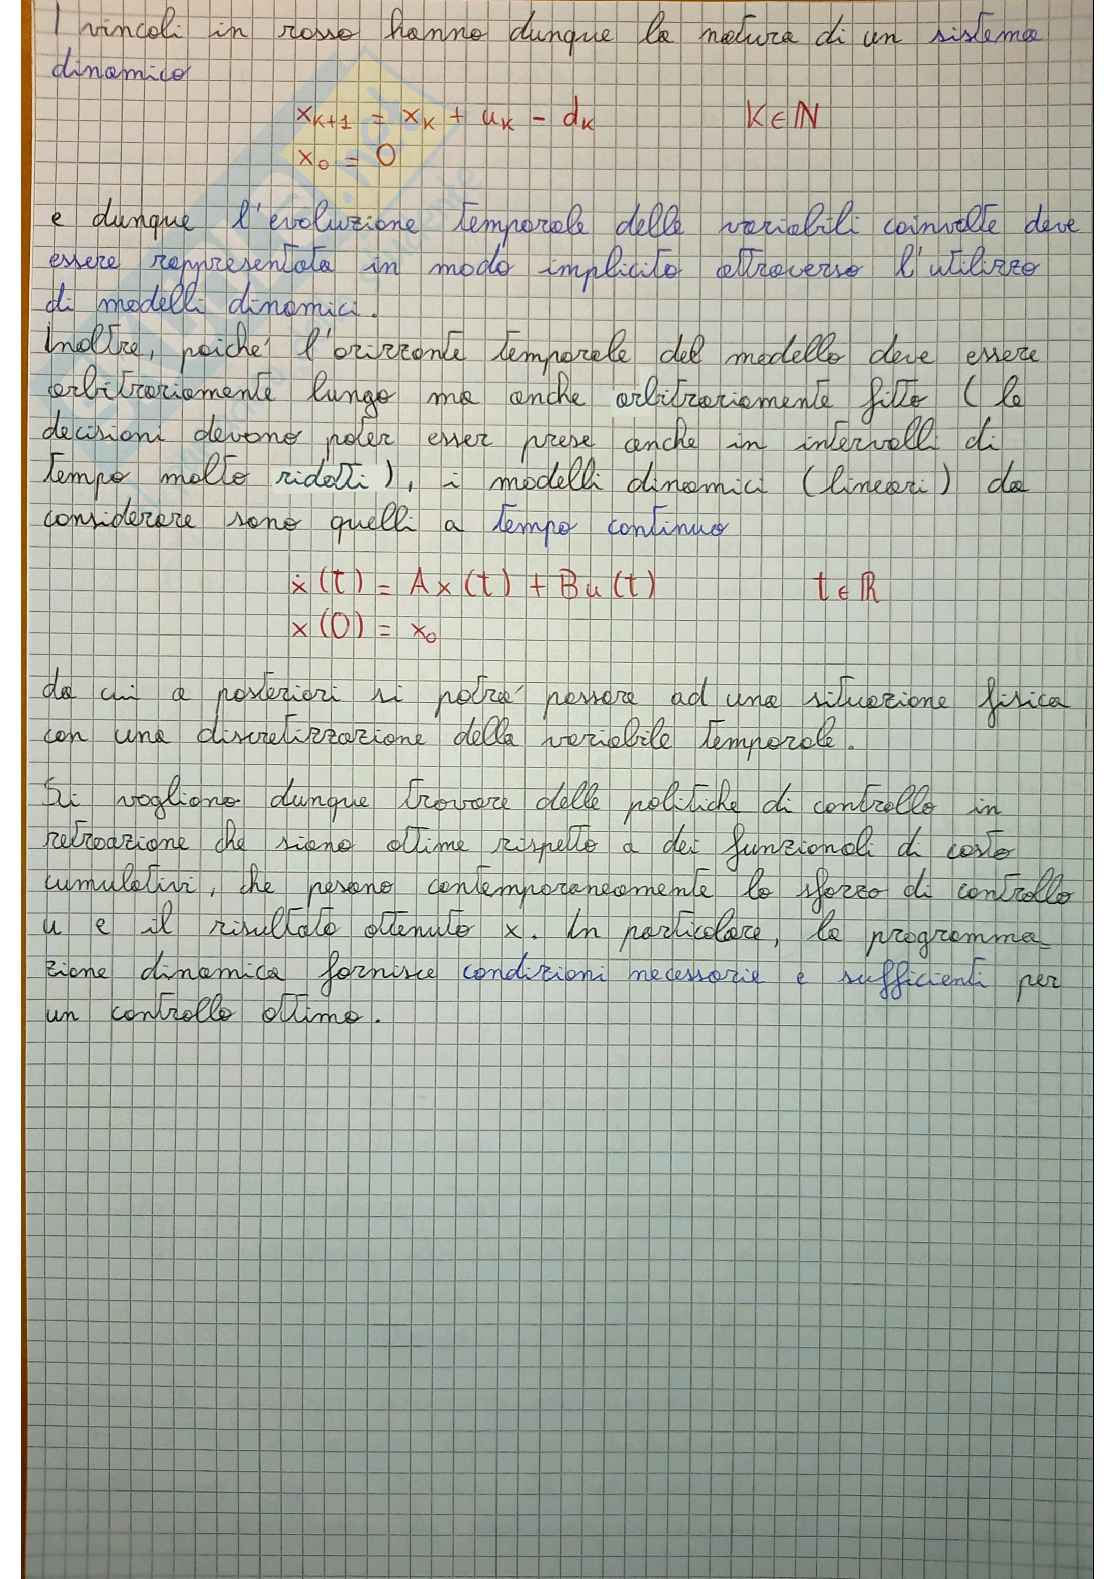 I vincoli in rosso hanno dunque la natura di un sistema
dinamico
x_{k+1} = x_k + u_k - d_k    k ∈ ℕ
x_0 = 0
e dunque l'evoluzione temporale delle variabili coinvolte deve
essere rappresentata in modo implicito attraverso l'utilizzo
di modelli dinamici.
Inoltre, poiché l'orizzonte temporale del modello deve essere
arbitrariamente lungo ma anche arbitrariamente fitto (le
decisioni devono poter esser prese anche in intervalli di
tempo molto ridotti), i modelli dinamici (lineari) da
considerare sono quelli a tempo continuo
ẋ(t) = Ax(t) + Bu(t)    t ∈ ℝ
x(0) = x_0
da cui a posteriori si potrà passare ad una situazione fisica
con una discretizzazione della variabile temporale.
Si vogliono dunque trovare delle politiche di controllo in
retroazione che siano ottime rispetto a dei funzionali di costo
cumulativi, che pesano contemporaneamente lo sforzo di controllo
u e il risultato ottenuto x. In particolare, la programma-
zione dinamica fornisce condizioni necessarie e sufficienti per
un controllo ottimo.